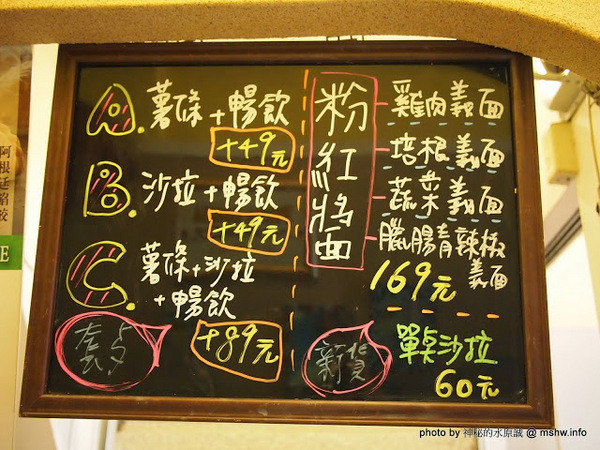 A. 薯條+暢飲
+49元
B. 沙拉+暢飲
+49元
C. 薯條+沙拉
+暢飲
+89元
套餐
粉紅醬面
雞肉義面
培根義面
蔬菜義面
臘腸青辣椒
義面
169元
新貨
單點沙拉
60元
阿根廷餡餃
E
photo by 神秘的水原誠 @ mshw.info